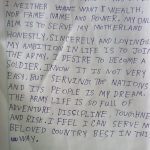 I NEITHER WANT WANT I WEALTH,
NOR FAME NAME AND POWER. MY ONLY
AIM IS TO SERVE MY MOTHERLAND
HONESTLY, SINCERELY AND LOVINGLY.
MY AMBITION IN LIFE IS TO JOIN
THE ARMY. I DESIRE TO BECOME A
SOLDIER. I KNOW IT IS NOT VERY
EASY, BUT SERVING THE NATIONS
AND ITS PEOPLE IS MY DREAM.
THE ARMY LIFE IS SO FULL OF
ADVENTURE, DISCIPLINE, TOUGHNESS
AND RISK. I FEEL I CAN SERVE MY
BELOVED COUNTRY BEST IN THIS
WAY.